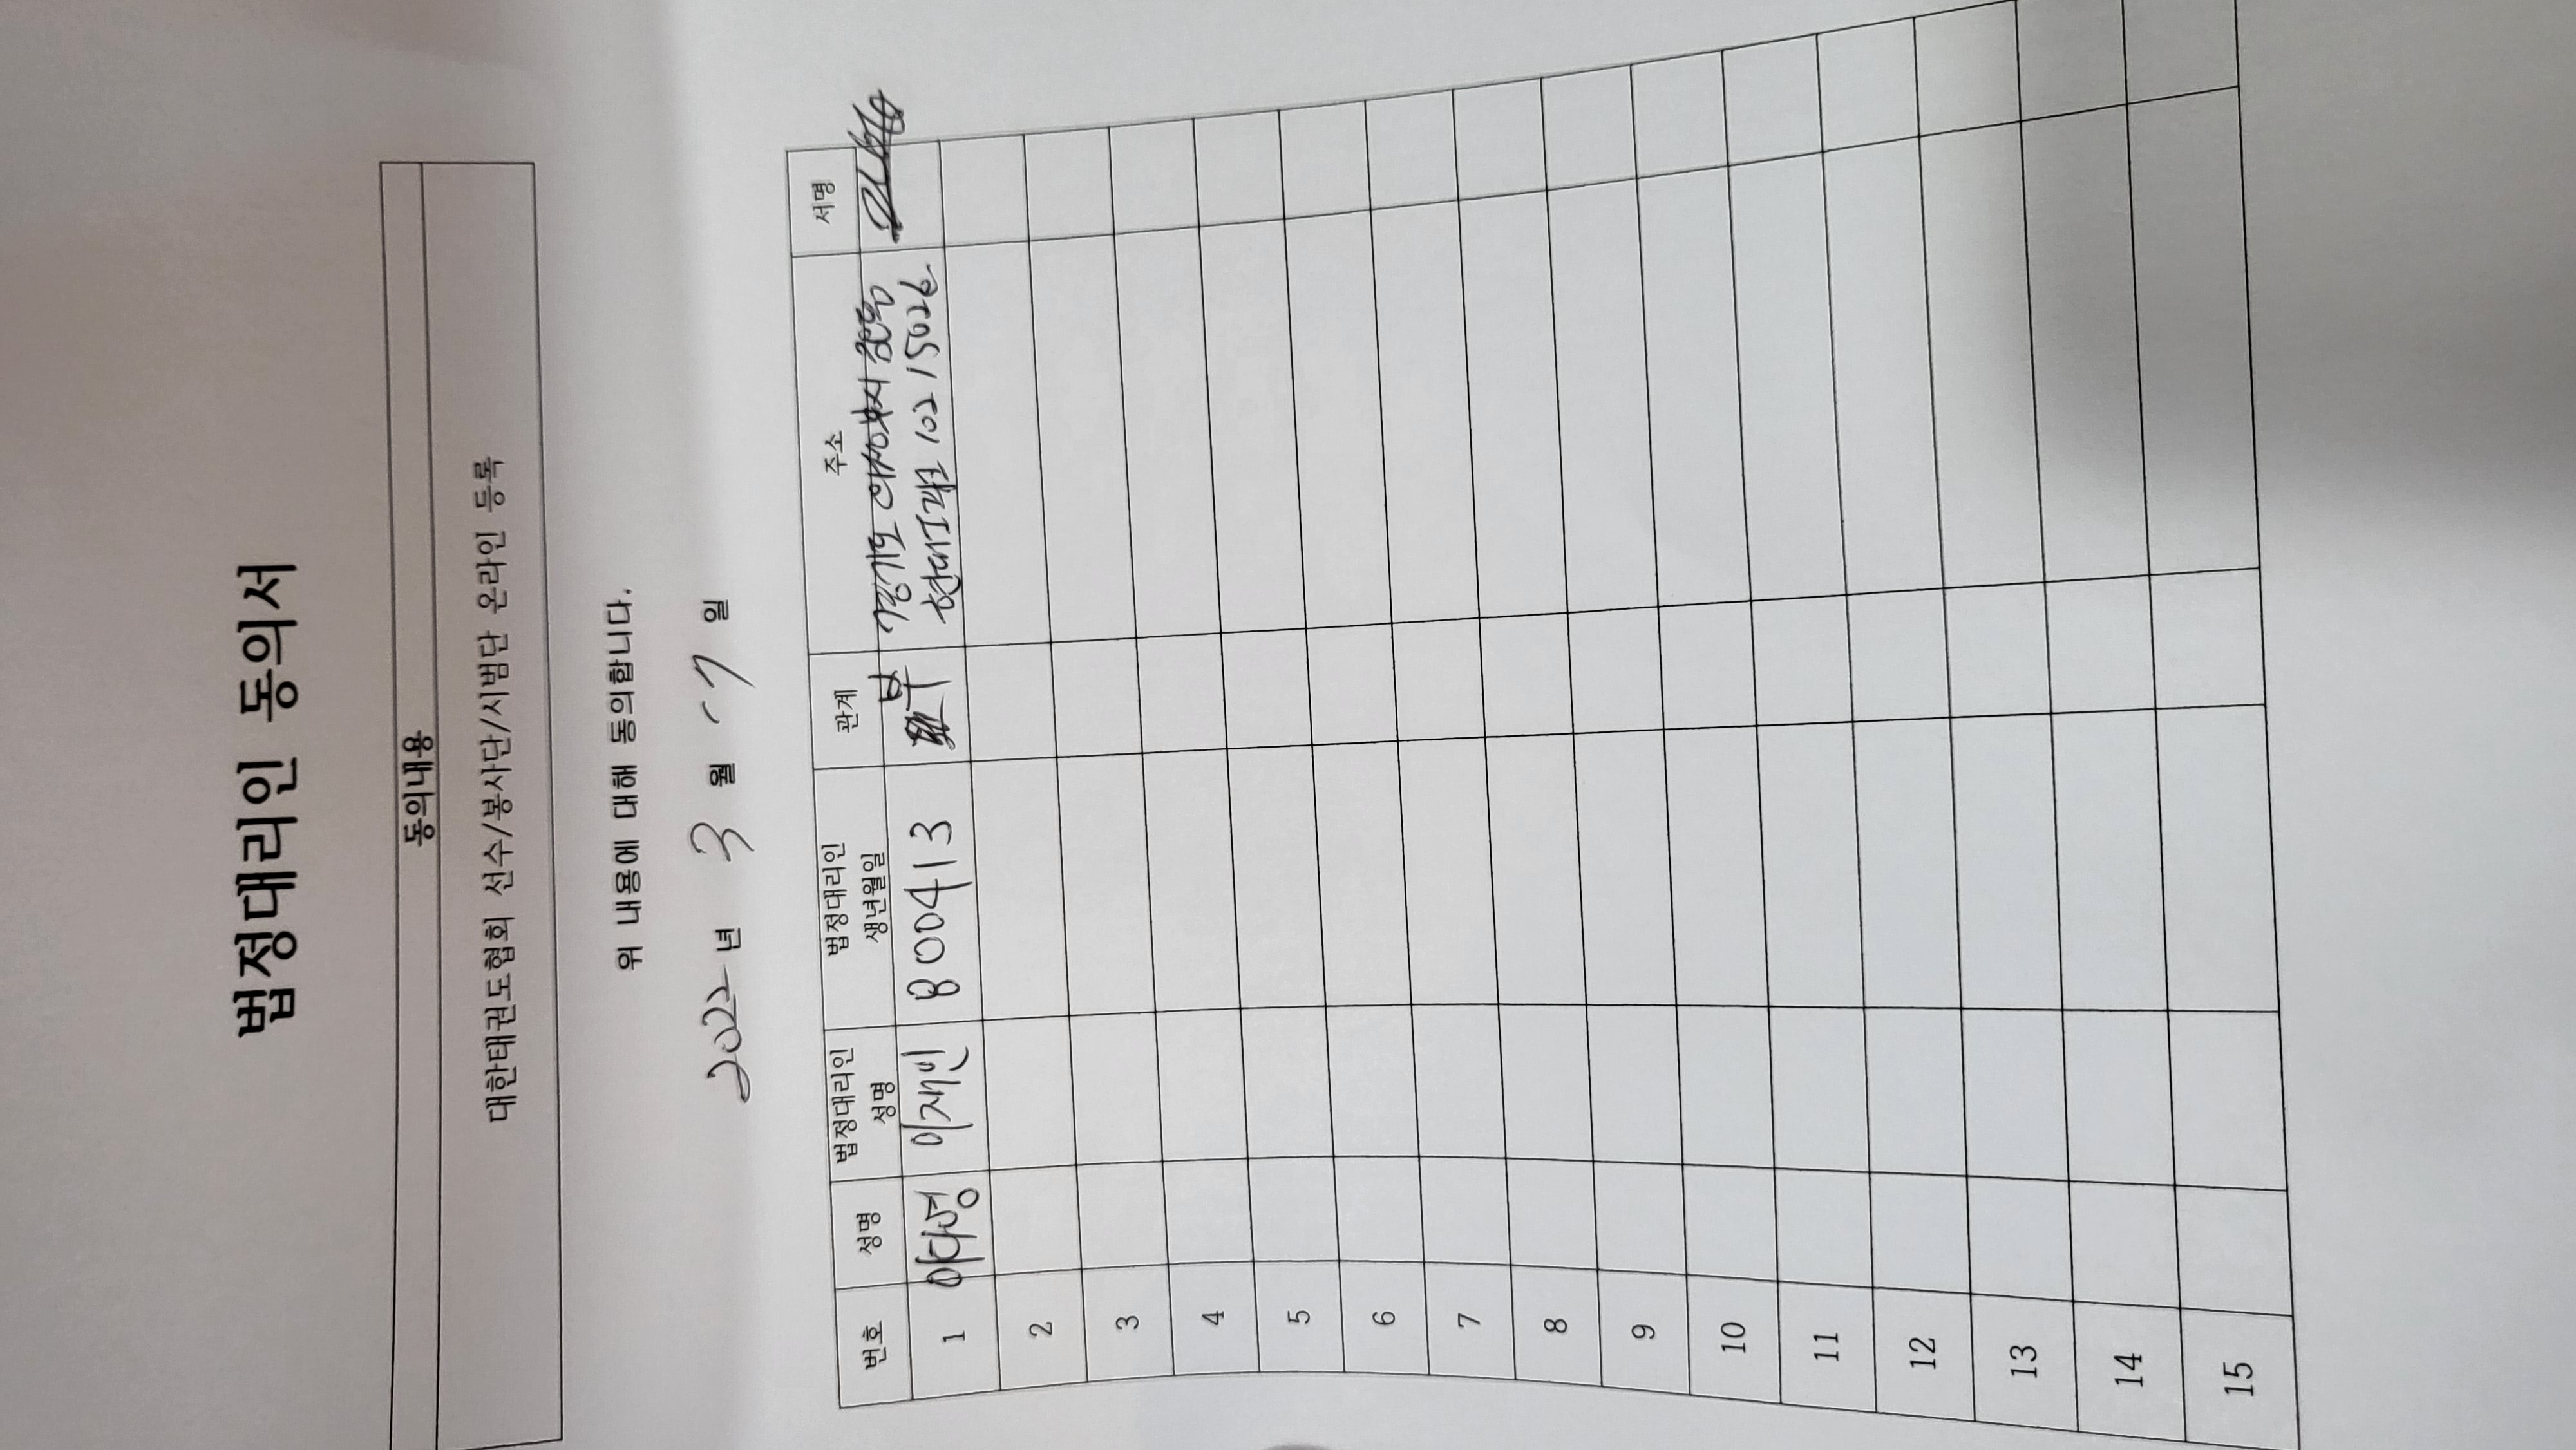 법정대리인 동의서
동의내용
대한태권도협회 선수/봉사단/시범단 온라인 등록
위 내용에 대해 동의합니다.
2022년 3 월 7 일
번호 성명 법정대리인 성명 법정대리인 생년월일 관계 주소 서명
1 이다경 이재민 800413 부 경기도
102 1502
2
3
4
5
6
7
8
9
10
11
12
13
14
15